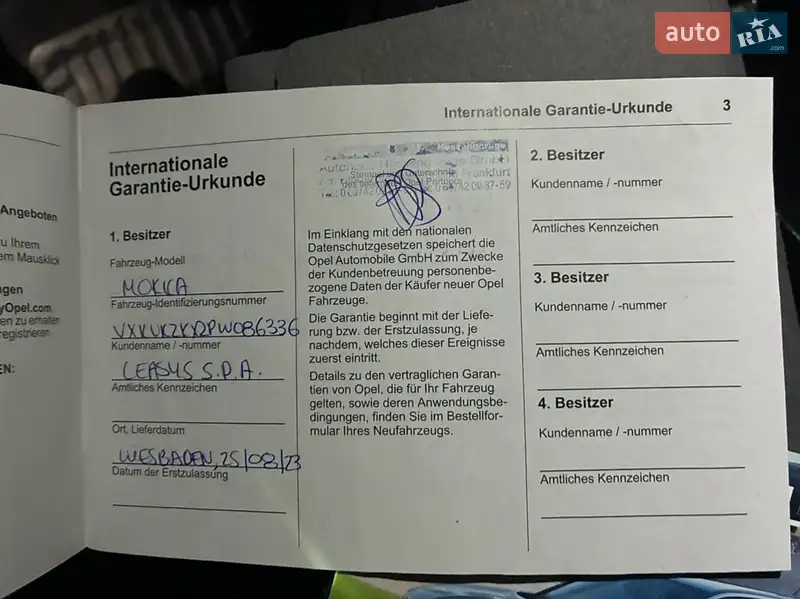 auto RIA .com
Internationale Garantie-Urkunde 3
Angeboten
zu Ihrem
em Mausklick
ngen
yOpel.com
en zu erhalten
registrieren.
EN:
Internationale
Garantie-Urkunde
1. Besitzer
Fahrzeug-Modell
MOKKA
Fahrzeug-Identifizierungsnummer
VXKUKZKXZPW086336
Kundenname / -nummer
LEASYS S.P.A.
Amtliches Kennzeichen
Ort, Lieferdatum
WIESBADEN, 25/08/23
Datum der Erstzulassung
Im Einklang mit den nationalen
Datenschutzgesetzen speichert die
Opel Automobile GmbH zum Zwecke
der Kundenbetreuung personenbe-
zogene Daten der Käufer neuer Opel
Fahrzeuge.
Die Garantie beginnt mit der Liefe-
rung bzw. der Erstzulassung, je
nachdem, welches dieser Ereignisse
zuerst eintritt.
Details zu den vertraglichen Garan-
tien von Opel, die für Ihr Fahrzeug
gelten, sowie deren Anwendungsbe-
dingungen, finden Sie im Bestellfor-
mular Ihres Neufahrzeugs.
2. Besitzer
Kundenname / -nummer
Amtliches Kennzeichen
3. Besitzer
Kundenname / -nummer
Amtliches Kennzeichen
4. Besitzer
Kundenname / -nummer
Amtliches Kennzeichen